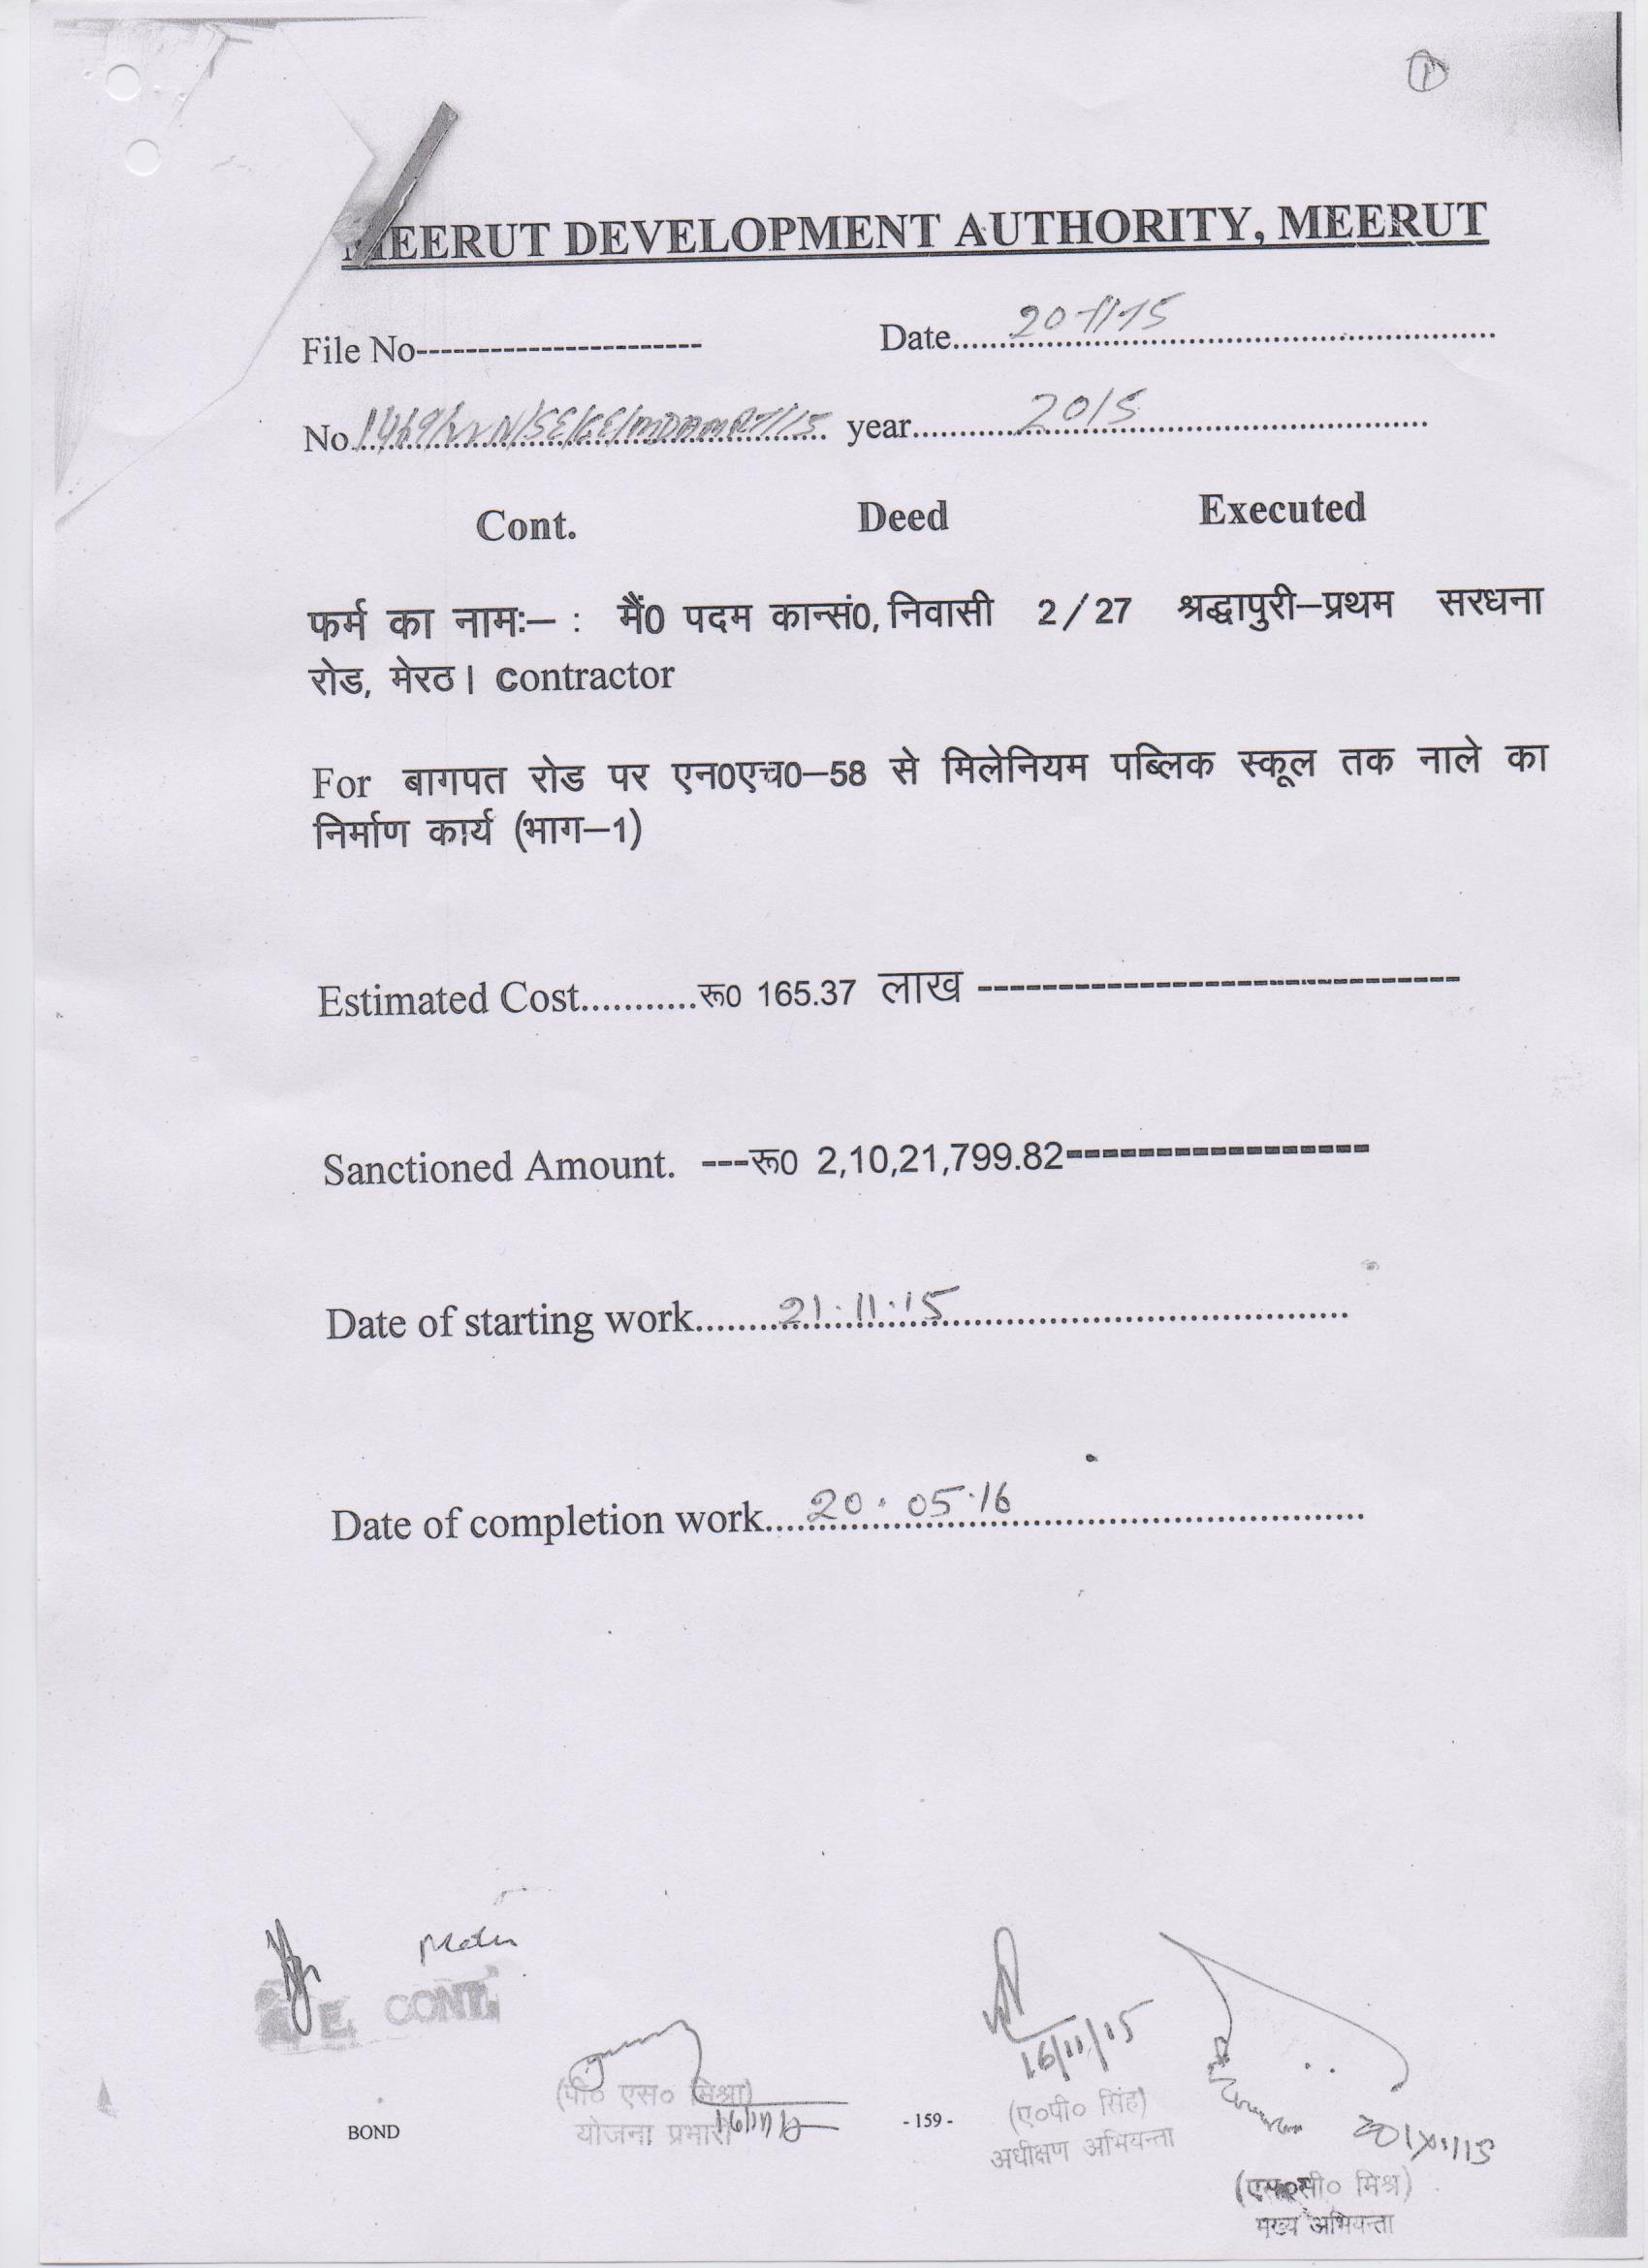 1
MEERUT DEVELOPMENT AUTHORITY, MEERUT
File No----------------------- Date....20-11-15....
No. year....2015....
Cont. Deed Executed
फर्म का नामः– : मैं0 पदम कान्सं0, निवासी 2/27 श्रद्धापुरी–प्रथम सरधना
रोड, मेरठ। contractor
For बागपत रोड पर एन0एच0–58 से मिलेनियम पब्लिक स्कूल तक नाले का
निर्माण कार्य (भाग–1)
Estimated Cost...........रू0 165.37 लाख ------------------------------
Sanctioned Amount. ---रू0 2,10,21,799.82------------------
Date of starting work........21.11.15........
Date of completion work....20.05.16........
E. CONT.
16/11/15
(पी० एस० मिश्रा)
योजना प्रभारी 16/11/15
BOND - 159 -
(ए०पी० सिंह)
अधीक्षण अभियन्ता
(एस०सी० मिश्र)
मुख्य अभियन्ता